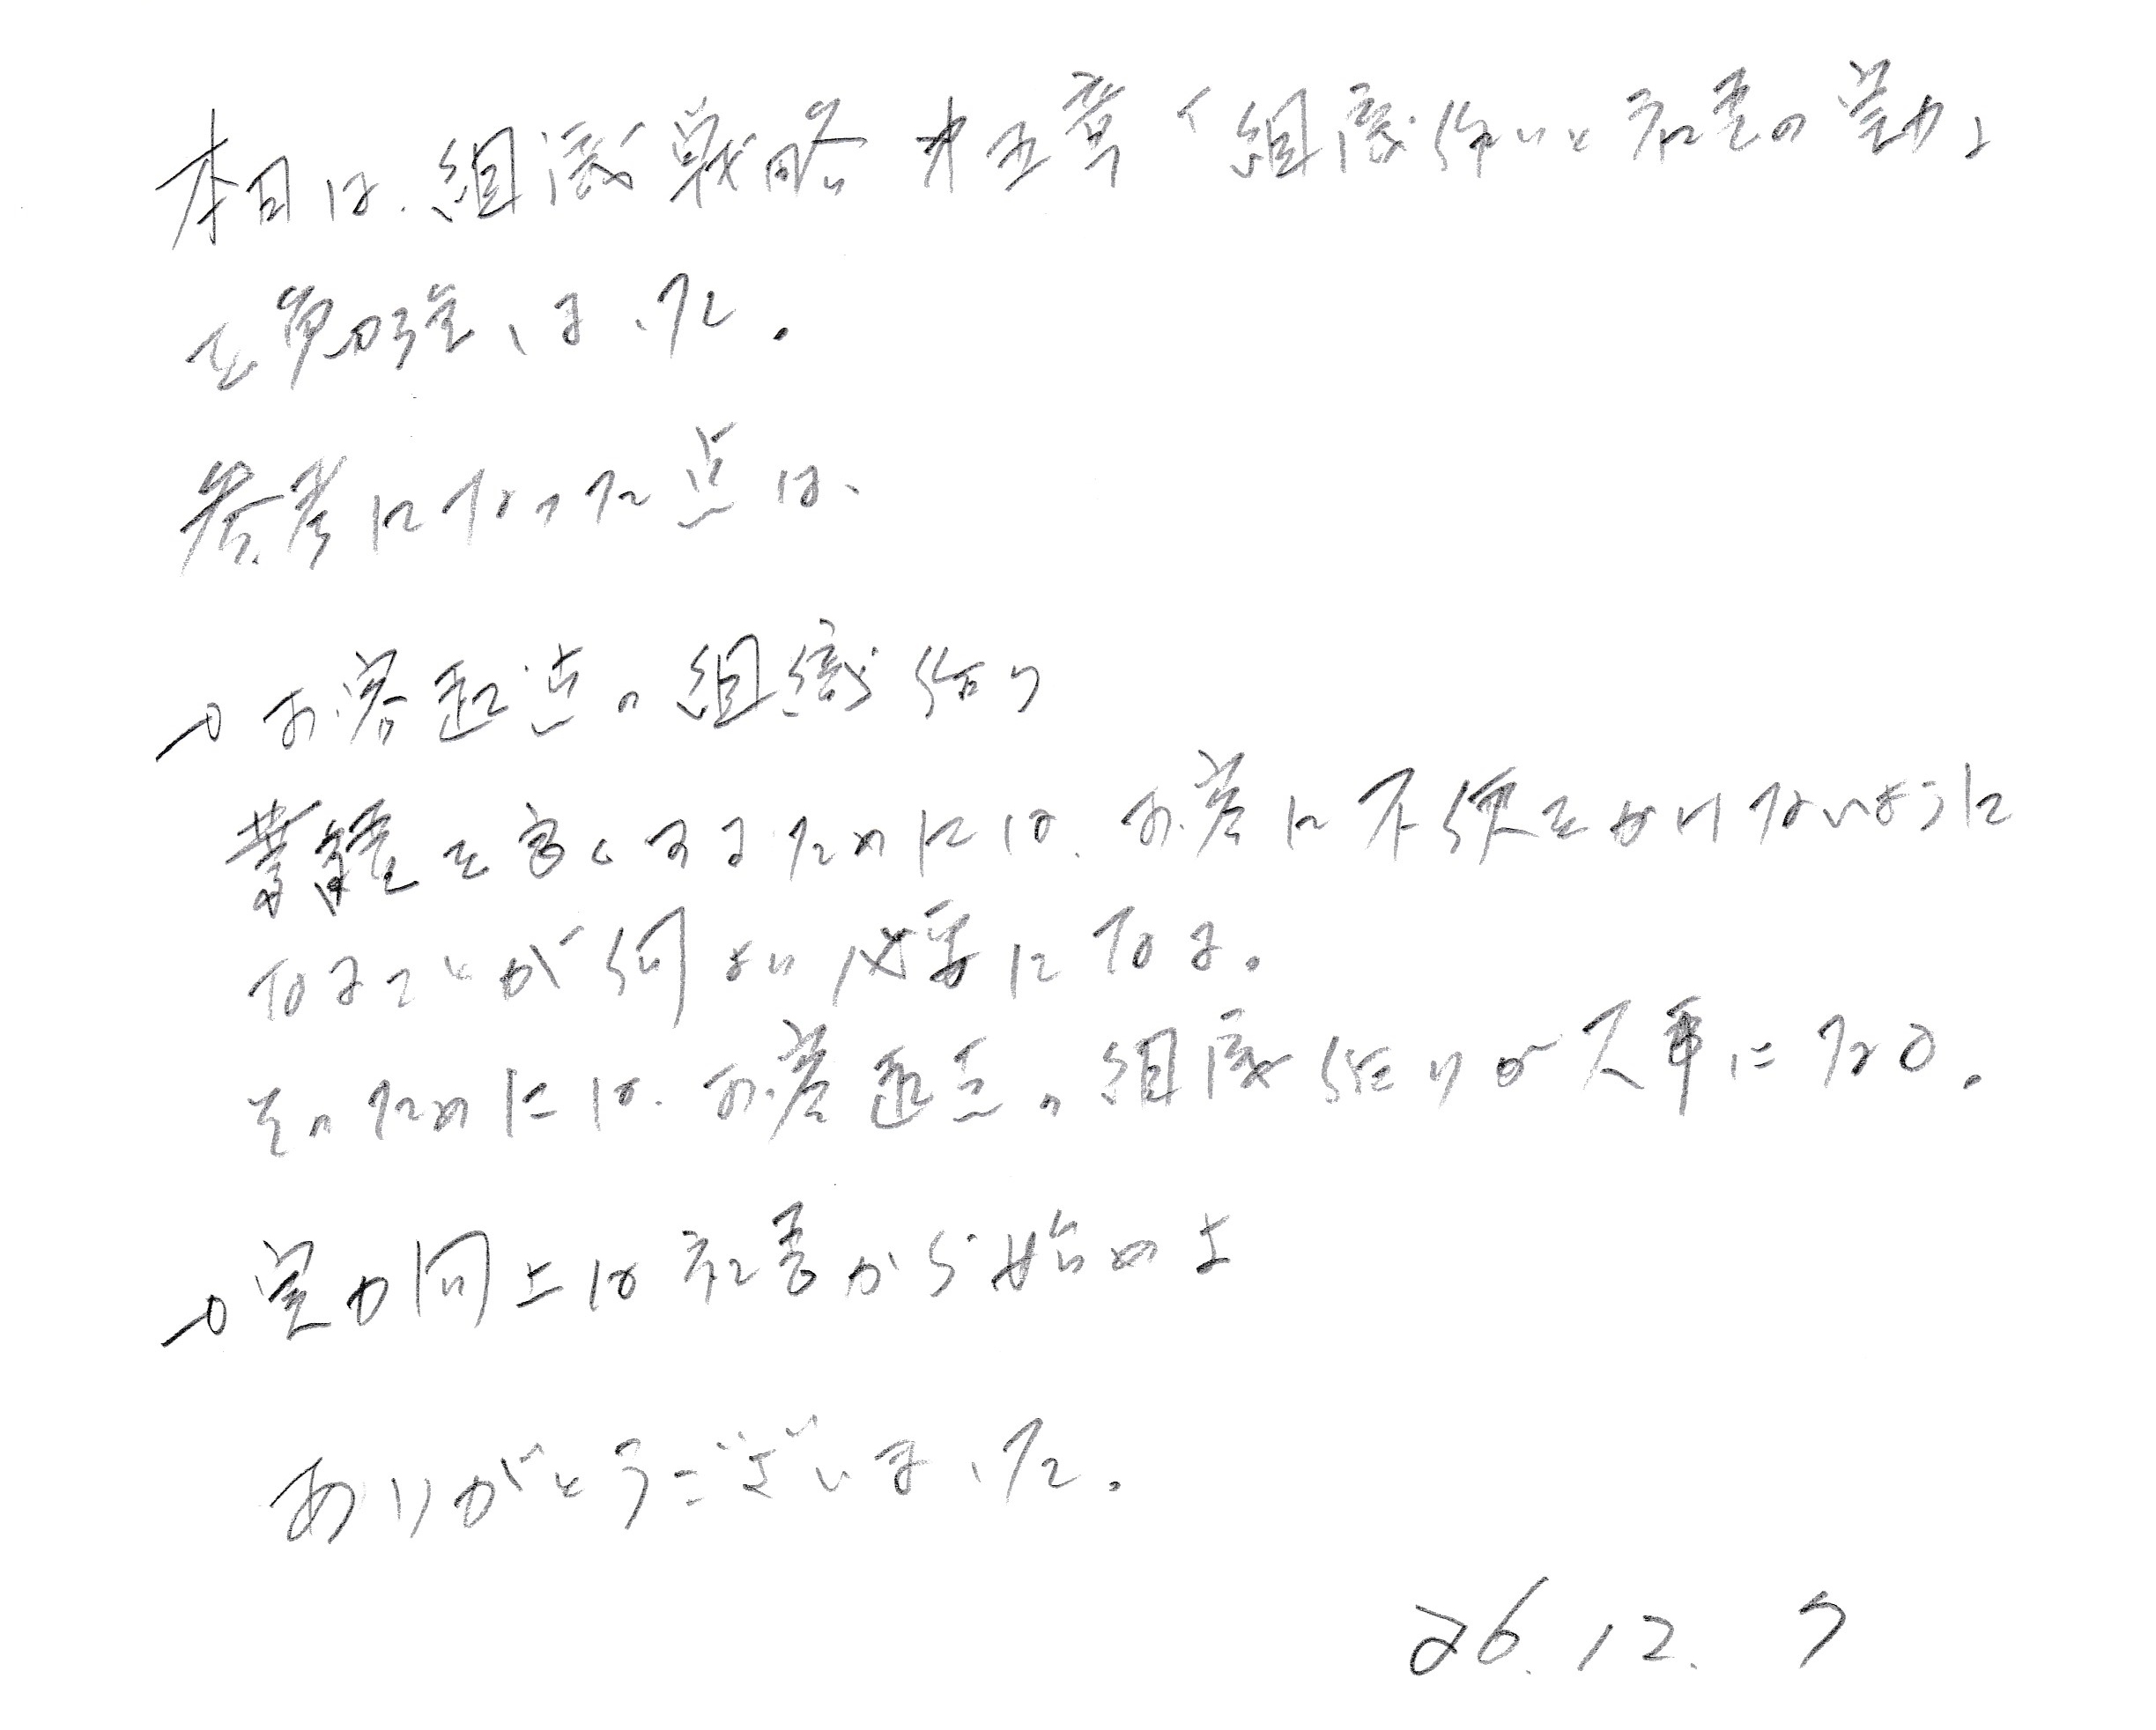 本日は、組織戦略 才五章「組織作りと社長の務め」
を勉強しました。
参考になった点は、
→お客起点の組織作り
業績を良くするためには、お客に不便をかけないように
なることが何より必要になる。
そのためには、お客起点の組織作りが大事になる。
→実力向上は社長から始めよ
ありがとうございました。
26.12.7